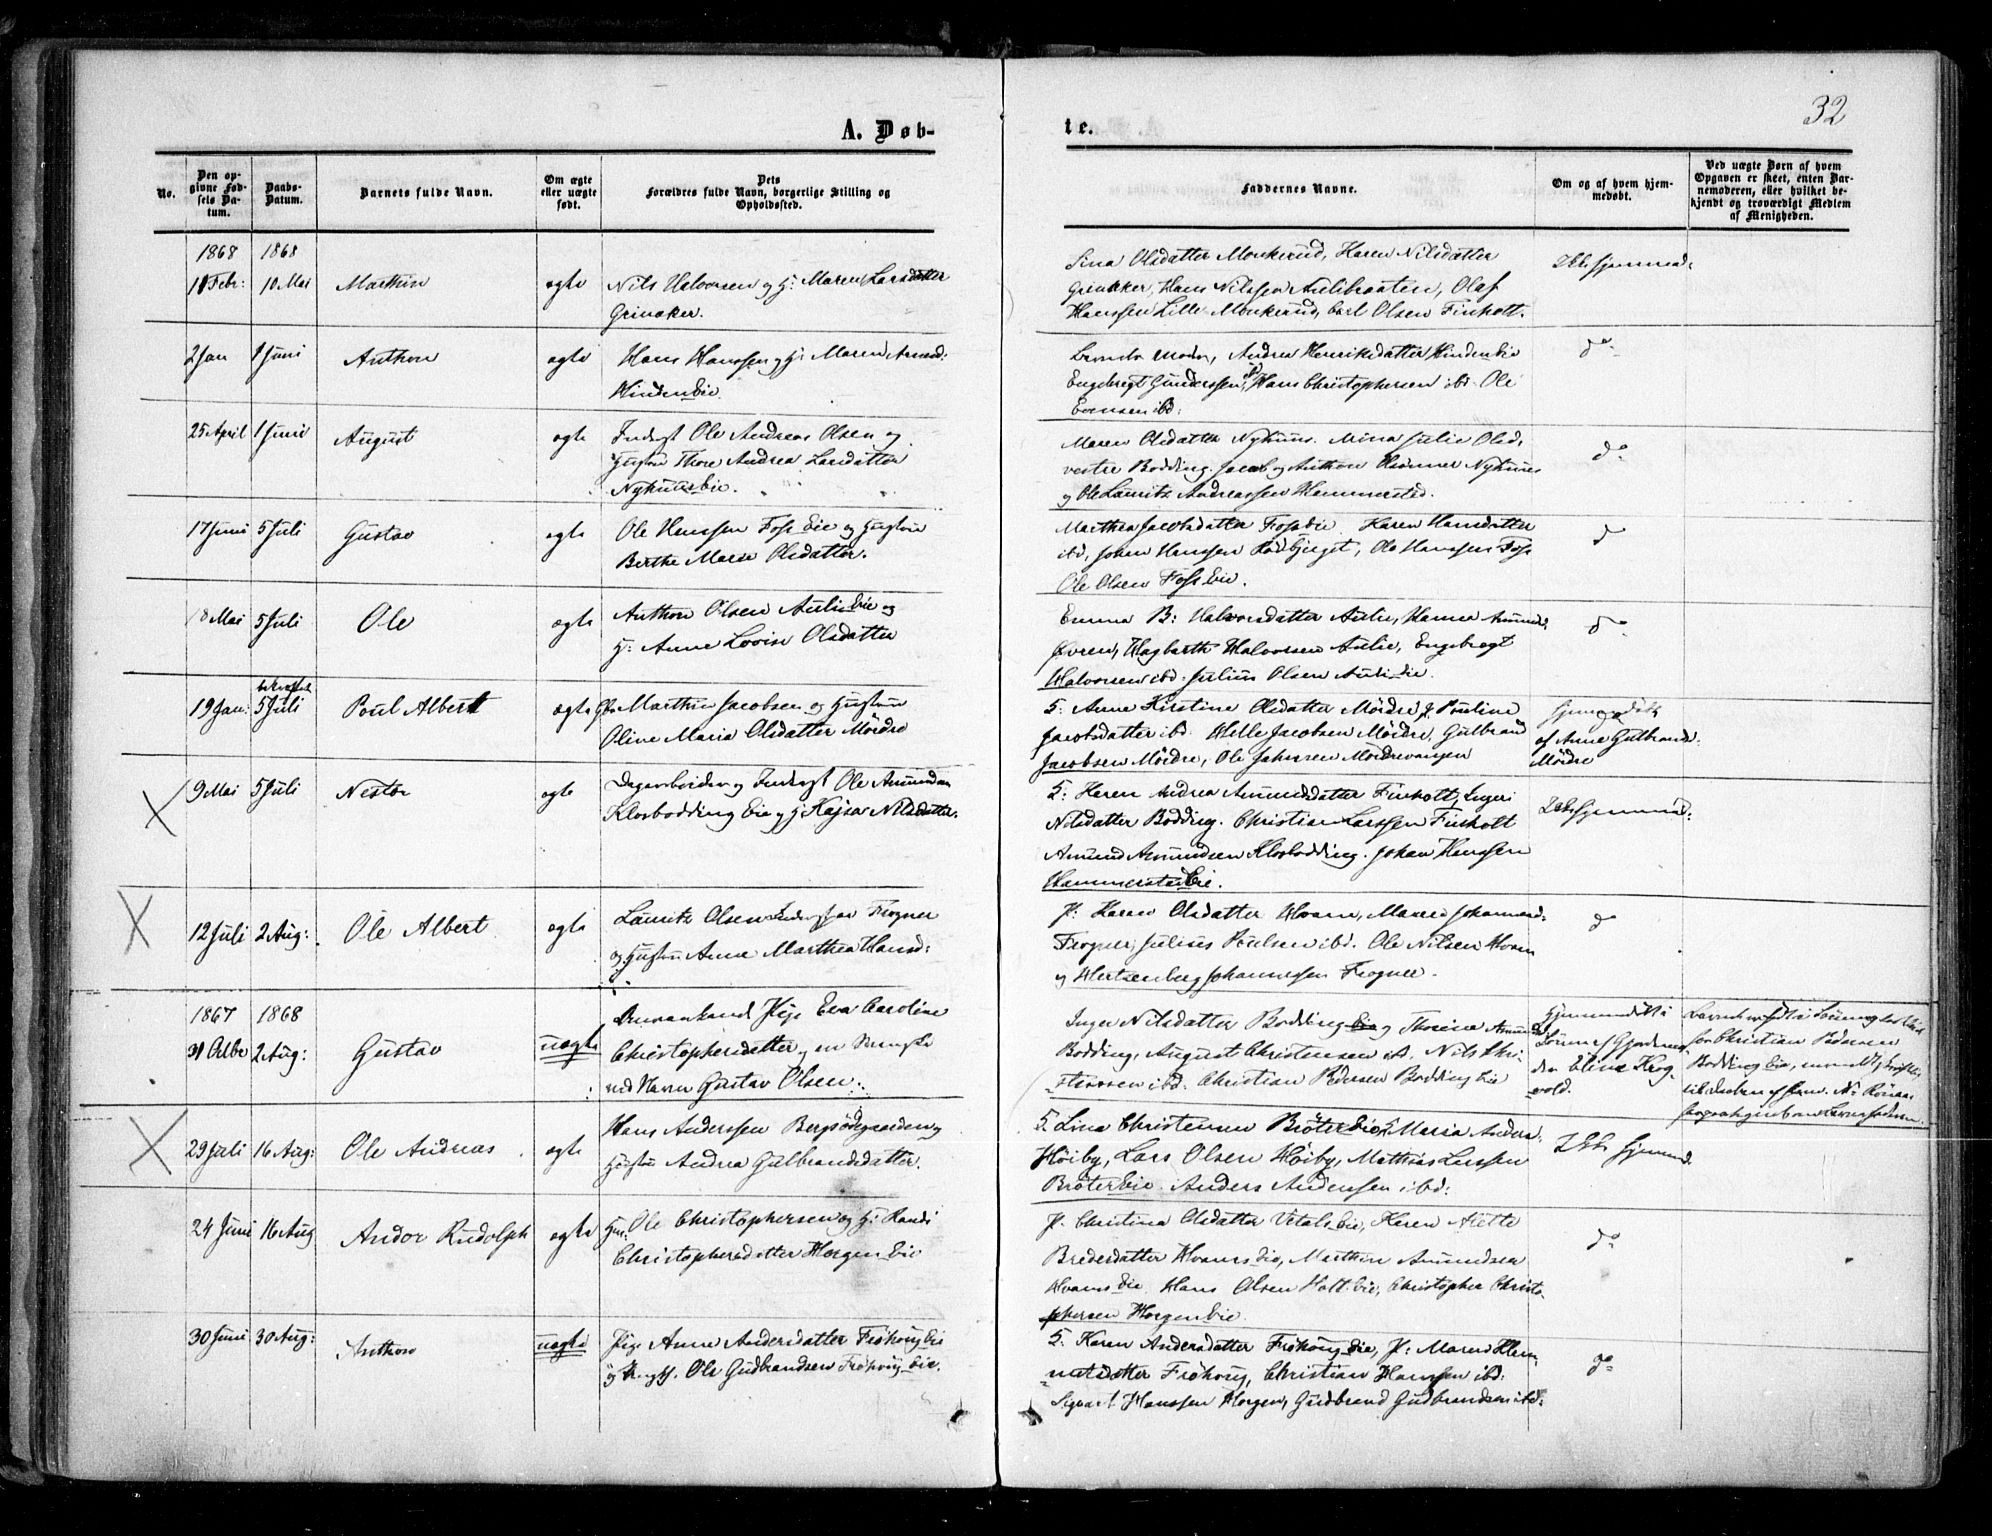 32
A. Døb-
te.
No.
Den op-
givne Fød-
sels Da-
tum.
Daabs-
Datum.
Barnets fulde Navn.
Om ægte
eller uægte
født.
Dets
Forældres fulde Navn, borgerlige Stilling og
Opholdssted.
Faddernes Navne.
Om og af hvem hjem-
medøbt.
Ved uægte Børn af hvem
Opgaven er skeet, enten Bar-
nemoderen, eller hvilket be-
kjendt og troværdigt Medlem
af Menigheden.
1868 1868
11 Febr: 10 Mai Marthin ægte Nils Halvorsen og H: Maren Larsdatter
Grinaker.
Sina Olsdatter Monkerud, Karen Nilsdatter
Grinaker, Hans Nilssen Aulibraaten, Olaf
Hanssen Lille Monkerud, Carl Olsen Finholt.
Ikke hjemmed:
2 Jan 1 Juni Anthon ægte Hans Hanssen og H: Maren Amund:
Hinden Eie
Barnets Moder, Andrea Henriksdatter Hinden Eie
Engebregt Gunderssen, Hans Christophersen ibd. Ole
Evensen ibd:
do
25 April 1 Juni August ægte Inderst Ole Andreas Olsen og
Hustru Thore Andrea Larsdatter
Nyhuus Eie.
Maren Olsdatter Nyhuus. Mina Julie Olsd.
vestre Bodding. Jacob og Anthon Olsønner Nyhuus
og Ole Lauritz Andreassen Hammerstad.
do
17 Juni 5 Juli Gustav ægte Ole Hanssen Foss Eie og Hustru
Berthe Marie Olsdatter.
Marthea Jacobsdatter Foss Eie Karen Hansdatter
ibd, Johan Hanssen Rødbjerget, Ole Hanssen Foss
Ole Olsen Foss Eie.
do
18 Mai 5 Juli Ole ægte Anthon Olsen Auli Eie og
H: Anne Lovise Olsdatter
Emma B: Halvorsdatter Aulie, Hanna Amund:
Øvren, Hagbarth Halvorsen Aulie, Engebregt
Halvorsen ibd. Julius Olsen Auli Eie.
do
19 Jan: bekræftet
5 Juli Poul Albert ægte Gbr. Marthin Jacobsen og Hustru
Oline Maria Olsdatter Mördre
S: Anne Kirstine Olsdatter Mördre, P. Pauline
Jacobsdatter ibd. Helle Jacobsen Mördre, Gulbrand
Jacobsen Mördre, Ole Johnsen Mördrevangen
Hjemmedøbt
af Anne Gulbrands:
Mördre
9 Mai 5 Juli Nestor ægte Dagarbeider og Inderst Ole Amundsen
Klosbodding Eie og H: Kajsa Nilsdatter.
S: Karen Andrea Amundsdatter Finholt, Ingeri
Nilsdatter Bodding. Christian Larssen Finholt
Amund Amundsen Klosbodding. Johan Hanssen
Hammerstad Eie.
Ikke hjemmed:
12 Juli 2 Aug: Ole Albert ægte Lauritz Olsen Inderst paa Frogner
og Hustru Anne Marthea Hansd:
P: Karen Olsdatter Hvam, Maren Johannesd:
Frogner, Julius Poulsen ibd. Ole Nilsen Hvam
og Hertzenberg Johannessen Frogner.
do
1867 1868
31 Octbr 2 Aug: Gustav uægte Omvankende Pige Eva Caroline
Christophersdatter og en Svenske
ved Navn Gustav Olsen.
Inger Nilsdatter Bodding Eie og Thorine Amunds
Bodding, August Christensen ibd. Nils Chri-
stenssen ibd. Christian Pedersen Bodding Eie
Hjemmedøbt i
Sörum af Gjordemo-
der Eline Krog-
vold.
Christian Pedersen
Bodding Eie
29 Juli 16 Aug: Ole Andreas ægte Hans Anderssen Bergsödegaarden og
Hustru Andrea Gulbrandsdatter.
S. Lina Christensen Bröter Eie, S. Maria Anders:
Höiby, Lars Olsen Höiby, Mathias Larssen
Bröter Eie. Anders Andersen ibd:
Ikke hjemmed.
24 Juni 16 Aug Andor Rudolph ægte Hmd. Ole Christophersen og H: Randi
Christophersdatter Horgen Eie
P: Christina Olsdatter Vetals Eie, Karen Alette
Bredesdatter Hvams Eie, Marthin Amundsen
Hvams Eie. Hans Olsen Holt Eie, Christopher Christo-
phersen Horgen Eie.
do
30 Juni 30 Aug: Anthon uægte Pige Anne Andersdatter Fröhoug Eie
og Ungk. Ole Gudbrandsen Fröhoug Eie.
S. Karen Andersdatter Fröhoug Eie, P: Maren Klem-
metsdatter Fröhoug, Christian Hanssen ibd:
Sigvart Hanssen Horgen, Gudbrand Gudbrandsen ibd.
do